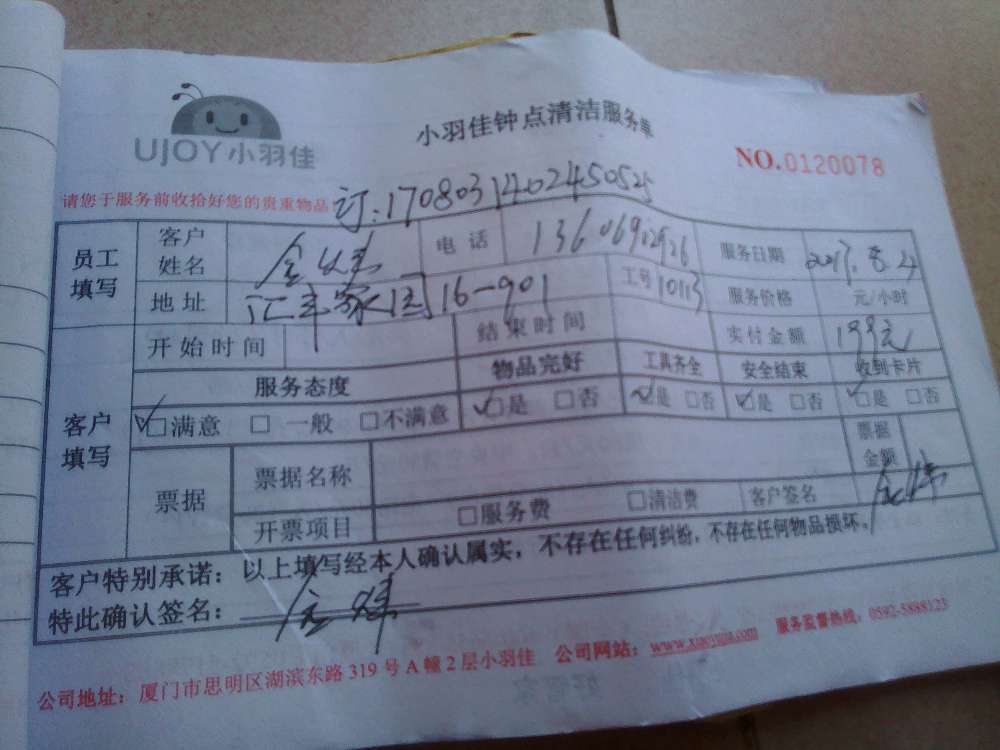 UJOY小羽佳
小羽佳钟点清洁服务单
NO.0120078
请您于服务前收拾好您的贵重物品
订:1708031402450525
员工填写 客户姓名 电话 13606922926 服务日期 2017.8.4
地址 汇丰家园16-901 工号 10113 服务价格 元/小时
客户填写 开始时间 结束时间 实付金额 199元
服务态度 物品完好 工具齐全 安全结束 收到卡片
☑满意 □一般 □不满意 ☑是 □否 ☑是 □否 ☑是 □否 ☑是 □否
票据 票据名称 票据金额
开票项目 □服务费 □清洁费 客户签名
客户特别承诺：以上填写经本人确认属实，不存在任何纠纷，不存在任何物品损坏。
特此确认签名：
公司地址：厦门市思明区湖滨东路319号A幢2层小羽佳 公司网站：www.xiaoyujia.com 服务监督热线：0592-5888123